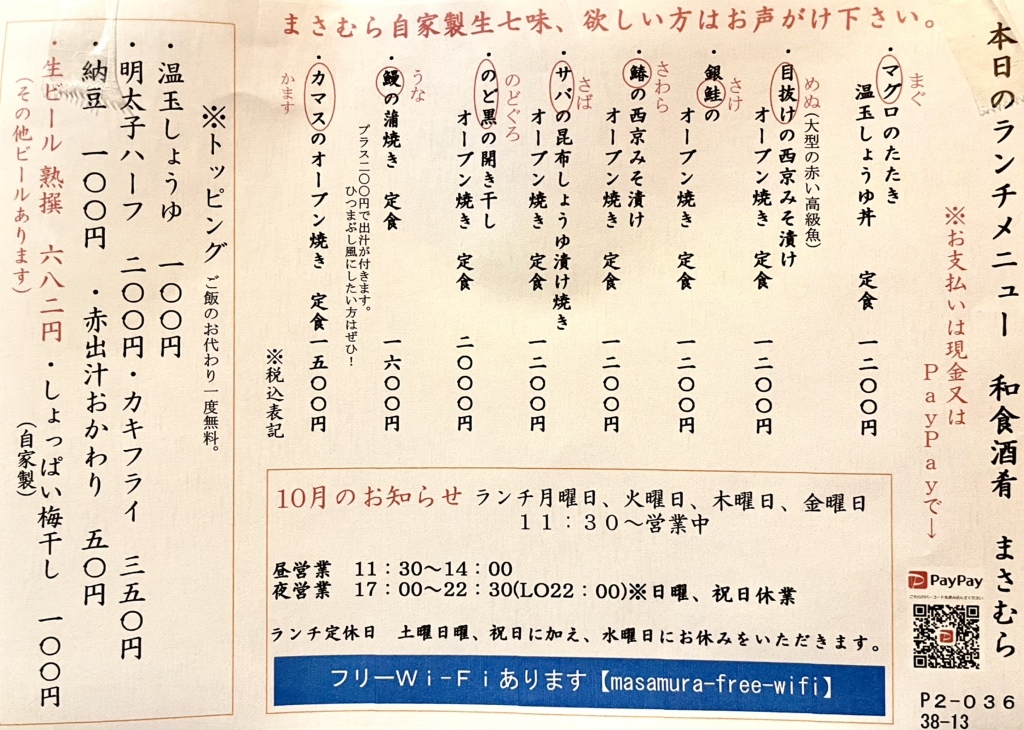 まさむら自家製生七味、欲しい方はお声がけ下さい。
本日のランチメニュー　和食酒肴　まさむら
※お支払いは現金又は
ＰａｙＰａｙで→
まぐ
・マグロのたたき
温玉しょうゆ丼　定食　一二〇〇円
めぬ(大型の赤い高級魚)
・目抜けの西京みそ漬け
オーブン焼き　定食　一二〇〇円
さけ
・銀鮭の
オーブン焼き　定食　一二〇〇円
さわら
・鰆の西京みそ漬け
オーブン焼き　定食　一二〇〇円
さば
・サバの昆布しょうゆ漬け焼き
オーブン焼き　定食　一二〇〇円
のどぐろ
・のど黒の開き干し
オーブン焼き　定食　二〇〇〇円
うな
・鰻の蒲焼き　定食　一六〇〇円
プラス二〇〇円で出汁が付きます。
ひつまぶし風にしたい方はぜひ！
かます
・カマスのオーブン焼き　定食一五〇〇円
※税込表記
※トッピング　ご飯のお代わり一度無料。
・温玉しょうゆ　一〇〇円
・明太子ハーフ　二〇〇円・カキフライ　三五〇円
・納豆　一〇〇円　・赤出汁おかわり　五〇円
・生ビール　熟撰　六八二円・しょっぱい梅干し　一〇〇円
(その他ビールあります)
(自家製)
10月のお知らせ ランチ月曜日、火曜日、木曜日、金曜日
１１：３０～営業中
昼営業　11：30～14：00
夜営業　17：00～22：30(LO22：00)※日曜、祝日休業
ランチ定休日　土曜日曜、祝日に加え、水曜日にお休みをいただきます。
フリーＷｉ-Ｆｉあります【masamura-free-wifi】
PayPay
P2-036
38-13